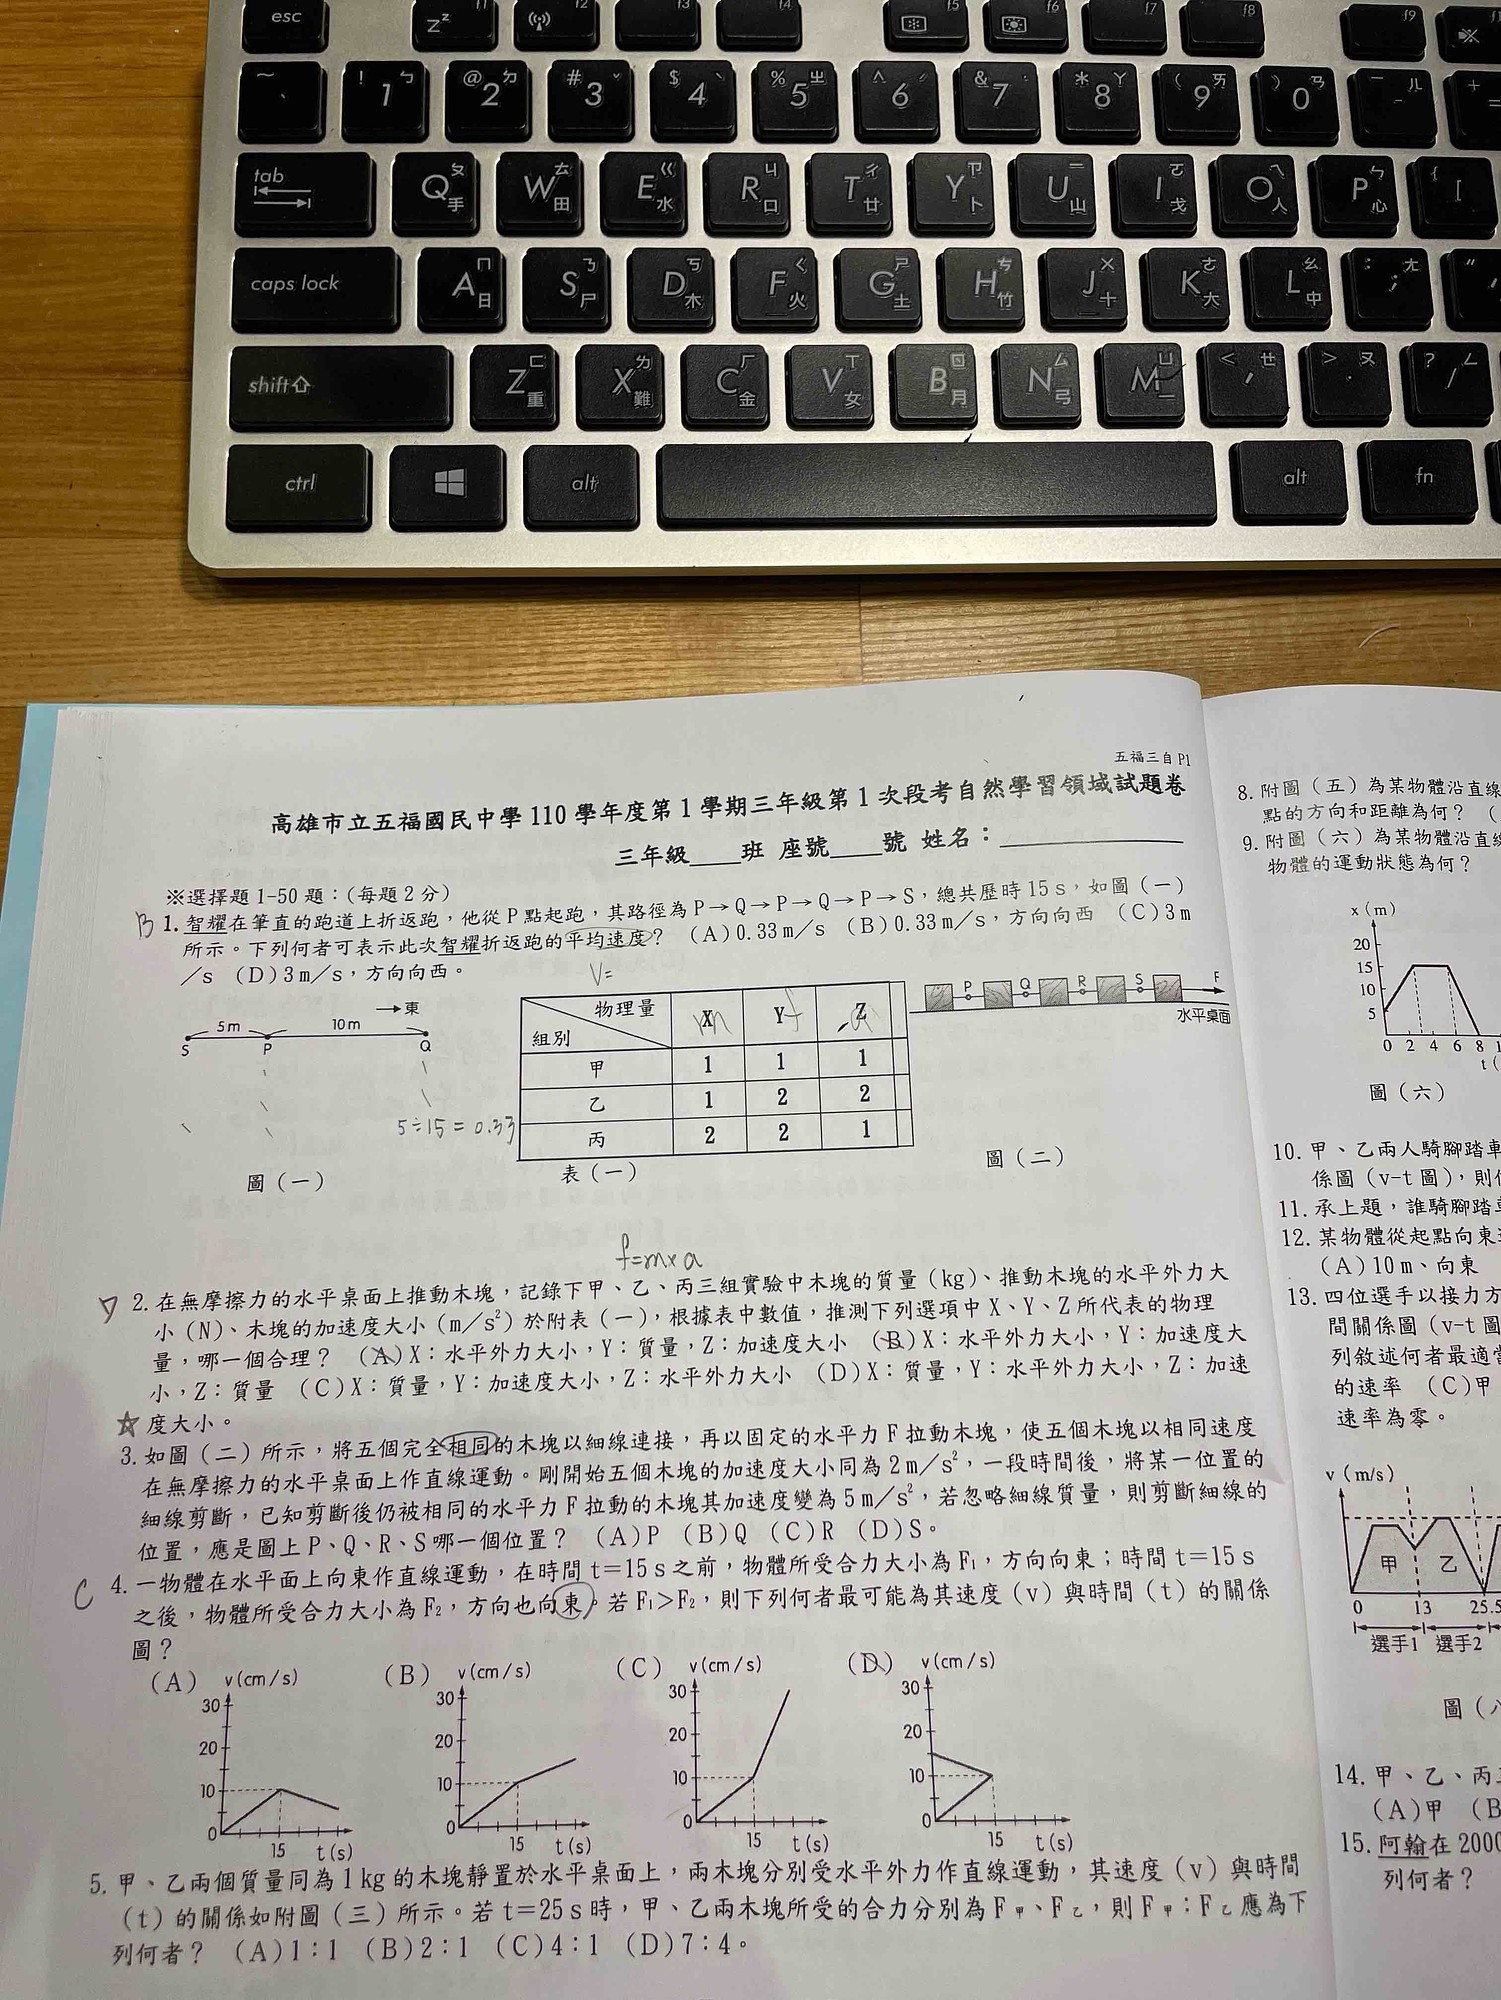 esc
f1
zᶻ
f2
f3
f4
f5
f6
f7
f8
f9
~ 、
! 1 ㄅ
@ 2 ㄉ
# 3 ˇ
$ 4 ˋ
% 5 ㄓ
^ 6 ˊ
& 7 ˙
* 8 ㄚ
( 9 ㄞ
) 0 ㄢ
- ㄦ
+ =
tab
Q ㄆ 手
W ㄊ 田
E ㄍ 水
R ㄐ 口
T ㄔ 廿
Y ㄗ 卜
U ㄧ 山
I ㄛ 戈
O ㄟ 人
P ㄣ 心
{ [
caps lock
A ㄇ 日
S ㄋ 尸
D ㄎ 木
F ㄑ 火
G ㄕ 土
H ㄘ 竹
J ㄨ 十
K ㄜ 大
L ㄠ 中
: ; ㄤ
" '
shift
Z ㄈ 重
X ㄌ 難
C ㄏ 金
V ㄒ 女
B ㄖ 月
N ㄙ 弓
M ㄩ 一
< , ㄝ
> . ㄡ
? / ㄥ
ctrl
alt
alt
fn
五福三自P1
高雄市立五福國民中學110學年度第1學期三年級第1次段考自然學習領域試題卷
三年級____班 座號____號 姓名：____________
※選擇題1-50題：(每題2分)
B 1. 智耀在筆直的跑道上折返跑，他從P點起跑，其路徑為P→Q→P→Q→P→S，總共歷時15s，如圖(一)
所示。下列何者可表示此次智耀折返跑的平均速度？ (A)0.33m／s (B)0.33m／s，方向向西 (C)3m
／s (D)3m／s，方向向西。
V=
→東
5m 10m
S P Q
5÷15=0.33
圖(一)
物理量 X Y Z
組別
m f a
甲 1 1 1
乙 1 2 2
丙 2 2 1
表(一)
P Q R S F
水平桌面
圖(二)
f=m×a
D 2. 在無摩擦力的水平桌面上推動木塊，記錄下甲、乙、丙三組實驗中木塊的質量(kg)、推動木塊的水平外力大
小(N)、木塊的加速度大小(m／s²)於附表(一)，根據表中數值，推測下列選項中X、Y、Z所代表的物理
量，哪一個合理？ (A)X：水平外力大小，Y：質量，Z：加速度大小 (B)X：水平外力大小，Y：加速度大
小，Z：質量 (C)X：質量，Y：加速度大小，Z：水平外力大小 (D)X：質量，Y：水平外力大小，Z：加速
☆ 度大小。
3. 如圖(二)所示，將五個完全相同的木塊以細線連接，再以固定的水平力F拉動木塊，使五個木塊以相同速度
在無摩擦力的水平桌面上作直線運動。剛開始五個木塊的加速度大小同為2m／s²，一段時間後，將某一位置的
細線剪斷，已知剪斷後仍被相同的水平力F拉動的木塊其加速度變為5m／s²，若忽略細線質量，則剪斷細線的
位置，應是圖上P、Q、R、S哪一個位置？ (A)P (B)Q (C)R (D)S。
C 4. 一物體在水平面上向東作直線運動，在時間t＝15s之前，物體所受合力大小為F₁，方向向東；時間t＝15s
之後，物體所受合力大小為F₂，方向也向東。若F₁＞F₂，則下列何者最可能為其速度(v)與時間(t)的關係
圖？
(A) v(cm/s) 30 20 10 0 15 t(s)
(B) v(cm/s) 30 20 10 0 15 t(s)
(C) v(cm/s) 30 20 10 0 15 t(s)
(D) v(cm/s) 30 20 10 0 15 t(s)
5. 甲、乙兩個質量同為1kg的木塊靜置於水平桌面上，兩木塊分別受水平外力作直線運動，其速度(v)與時間
(t)的關係如附圖(三)所示。若t＝25s時，甲、乙兩木塊所受的合力分別為F甲、F乙，則F甲：F乙應為下
列何者？ (A)1：1 (B)2：1 (C)4：1 (D)7：4。
8. 附圖(五)為某物體沿直線
點的方向和距離為何？ (
9. 附圖(六)為某物體沿直線
物體的運動狀態為何？
x(m)
20
15
10
5
0 2 4 6 8 1
t(
圖(六)
10. 甲、乙兩人騎腳踏車
係圖(v-t圖)，則
11. 承上題，誰騎腳踏車
12. 某物體從起點向東
(A)10m、向東
13. 四位選手以接力方
間關係圖(v-t圖
列敘述何者最適當
的速率 (C)甲
速率為零。
v(m/s)
甲 乙
0 13 25.5
選手1 選手2
圖(八
14. 甲、乙、丙三
(A)甲 (B
15. 阿翰在2000
列何者？